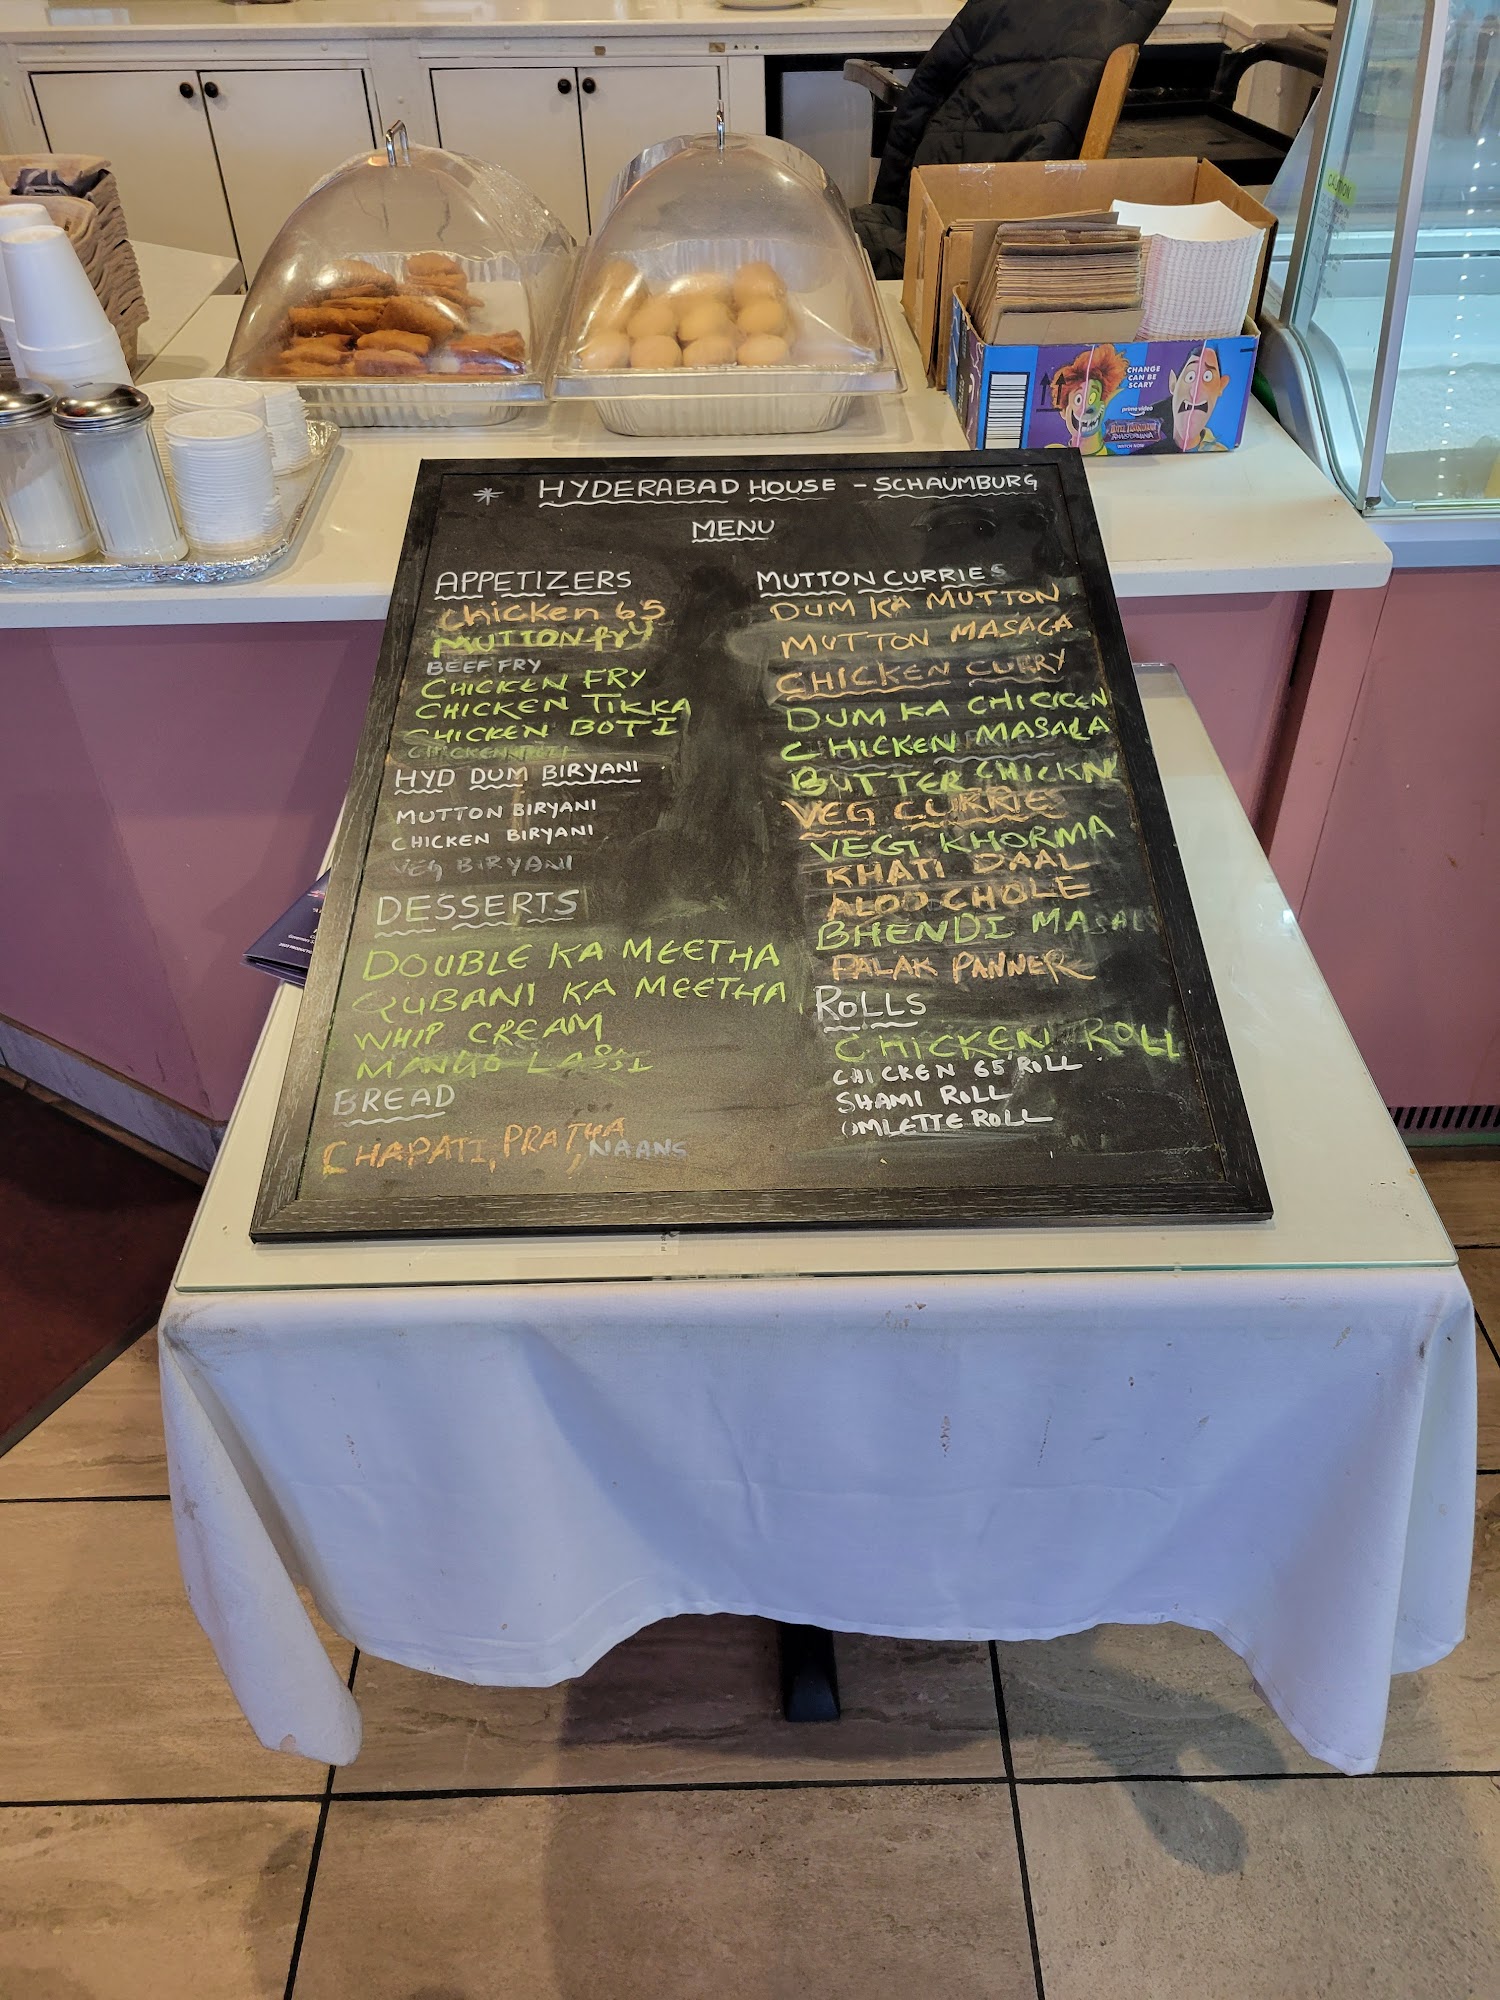 HYDERABAD HOUSE - SCHAUMBURG
MENU
APPETIZERS
Chicken 65
MUTTON fry
BEEF FRY
CHICKEN FRY
CHICKEN TIKKA
CHICKEN BOTI
HYD DUM BIRYANI
MUTTON BIRYANI
CHICKEN BIRYANI
VEG BIRYANI
DESSERTS
DOUBLE KA MEETHA
QUBANI KA MEETHA
WHIP CREAM
MANGO LASSI
BREAD
CHAPATI, PRATHA, NAANS
MUTTON CURRIES
DUM KA MUTTON
MUTTON MASALA
CHICKEN CURRY
DUM KA CHICKEN
CHICKEN MASALA
BUTTER CHICKN
VEG CURRIES
VEGT KHORMA
KHATI DAAL
ALOO CHOLE
BHENDI MASAL
PALAK PANNER
ROLLS
CHICKEN ROLL
CHICKEN 65 ROLL
SHAMI ROLL
OMLETTE ROLL
CHANGE
CAN BE
SCARY
prime video
CAUTION